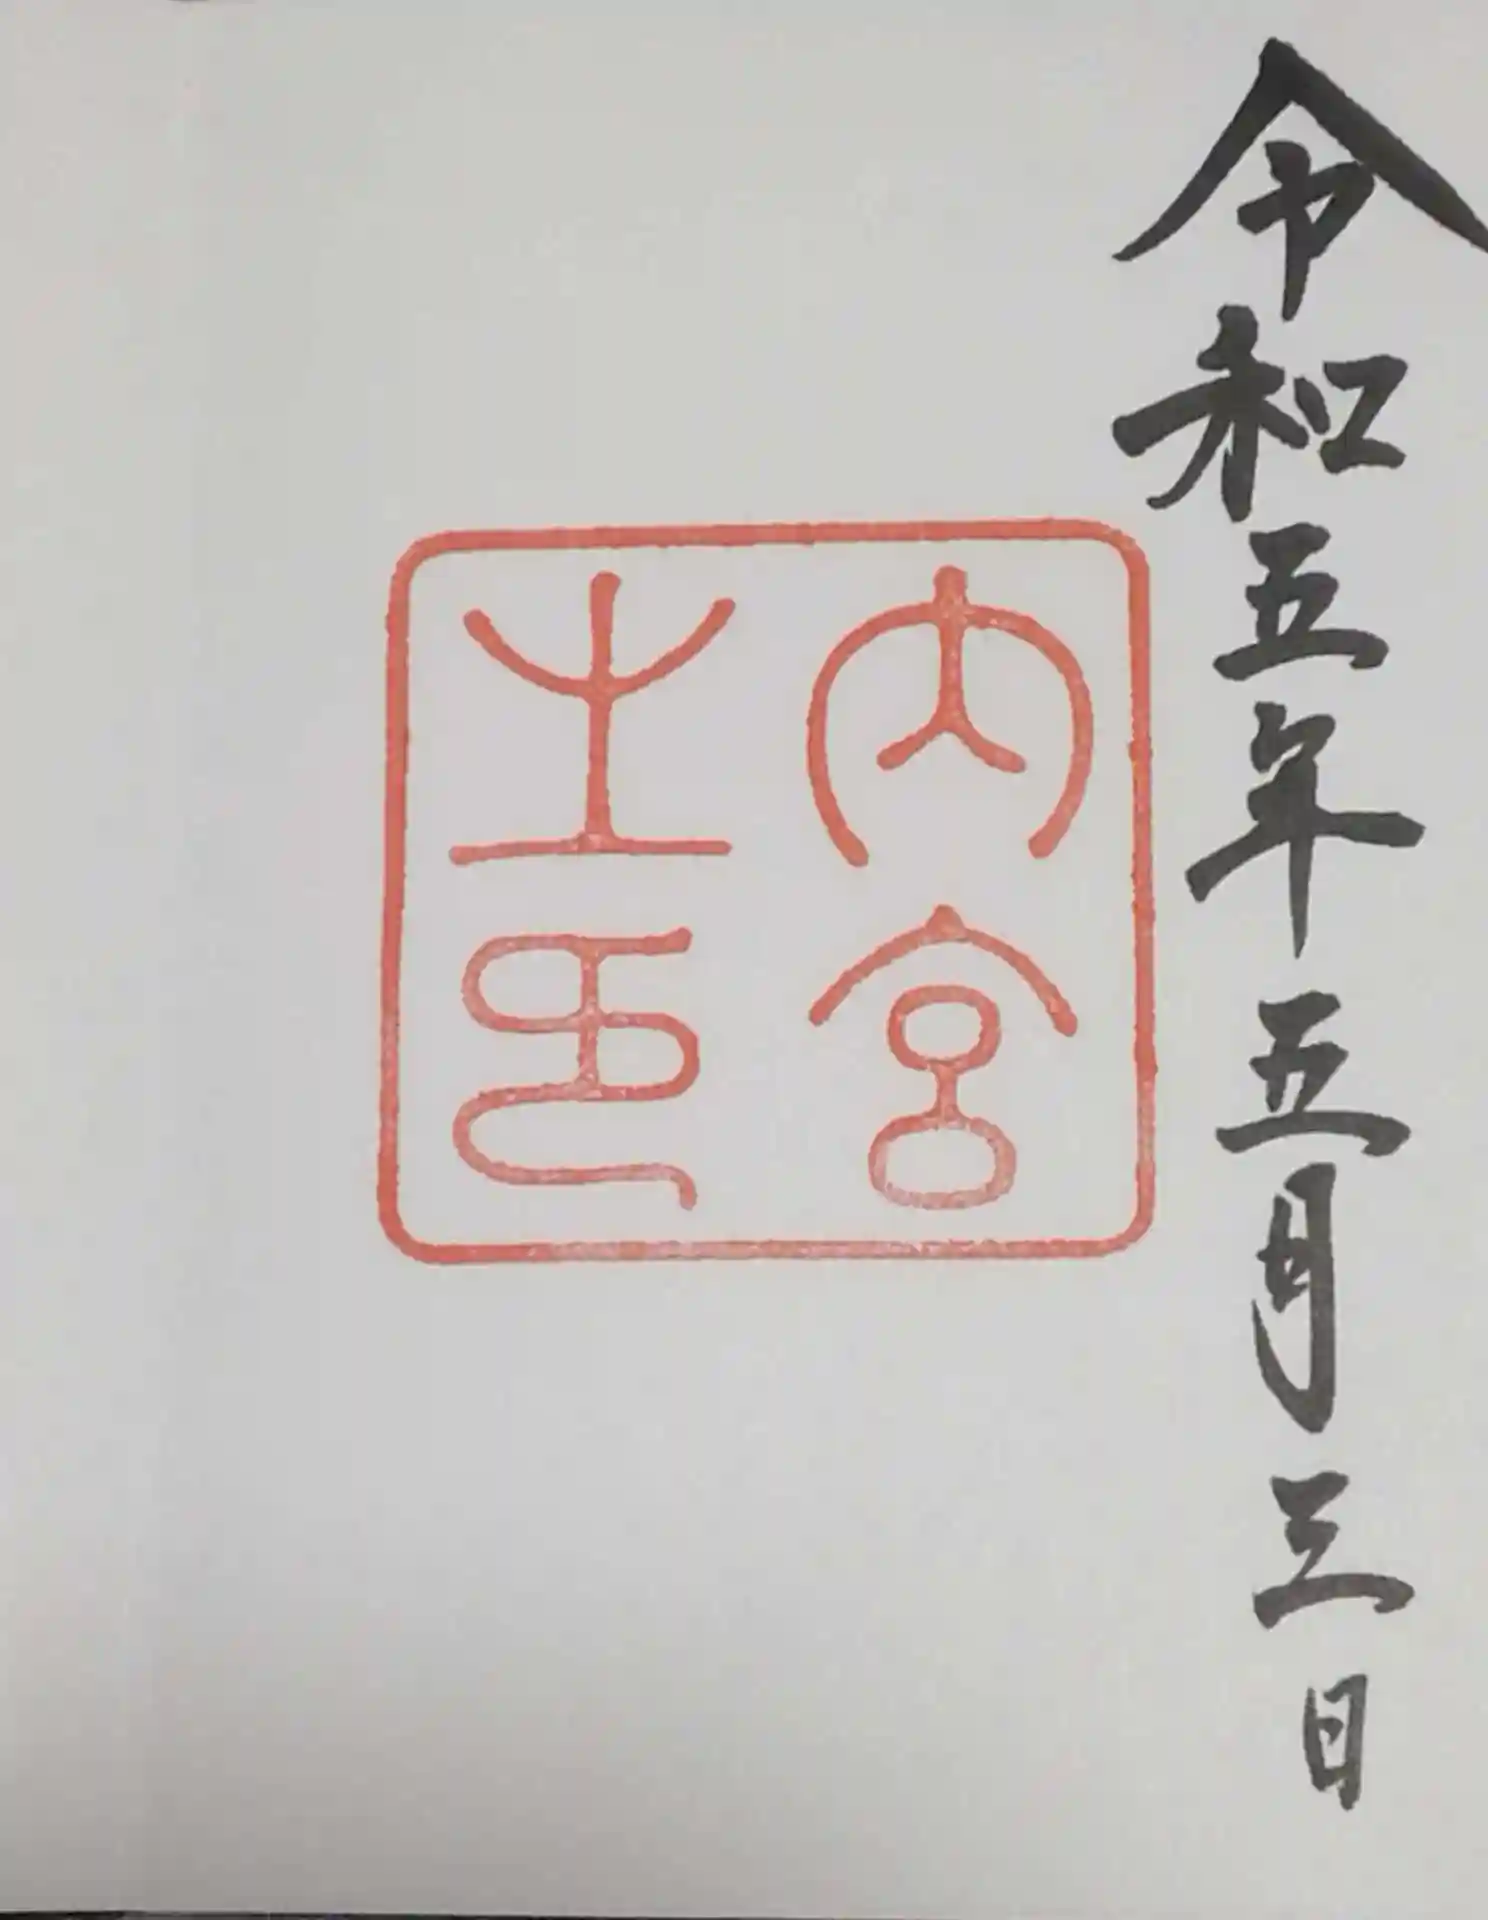 令和五年五月三日
内宮
之印